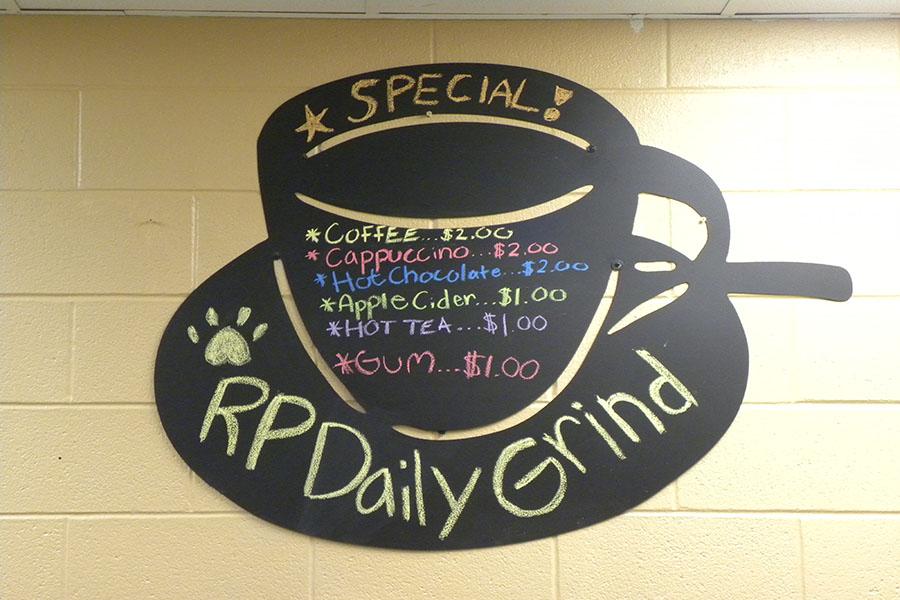 SPECIAL!
*COFFEE...$2.00
*Cappuccino...$2.00
*Hot Chocolate...$2.00
*Apple Cider...$1.00
*HOT TEA...$1.00
*GUM...$1.00
RP Daily Grind